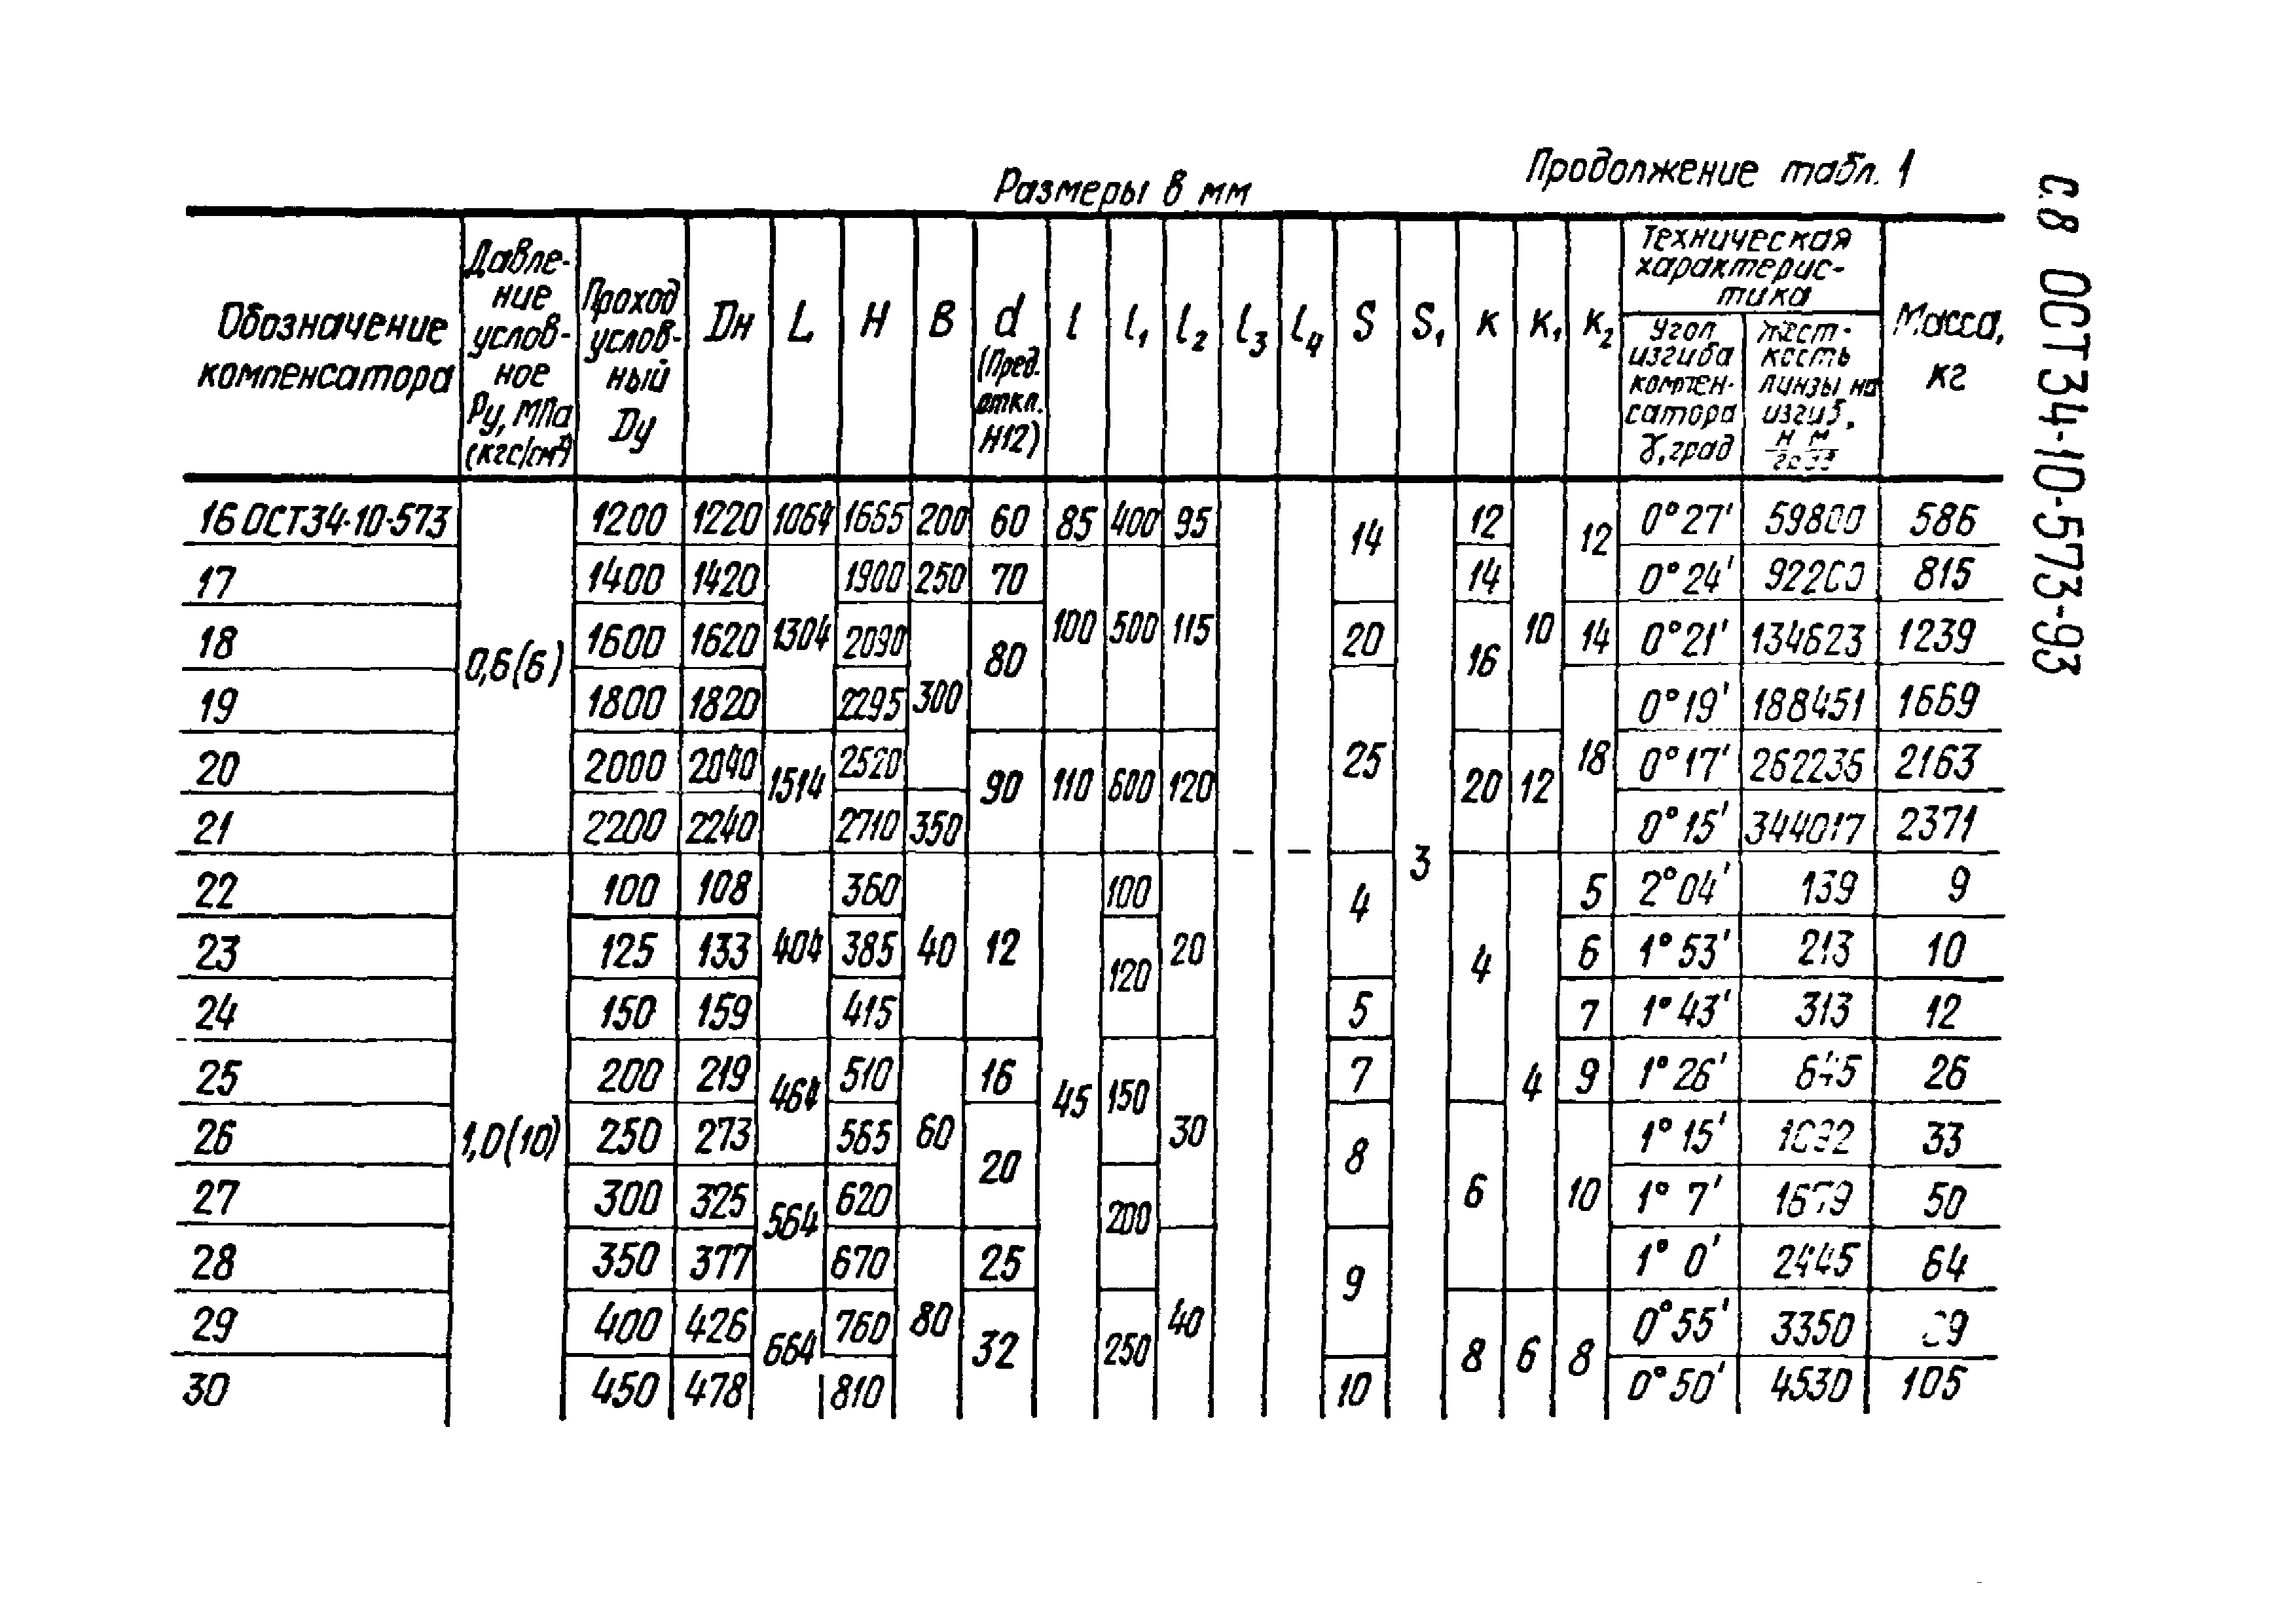 Размеры в мм
Продолжение табл. 1
с.8 ОСТ 34-10-573-93
Обозначение компенсатора
Давле-
ние
услов-
ное
Ру, МПа
(кгс/см²)
Проход
услов-
ный
Dу
Dн
L
H
B
d
(Пред.
откл.
H12)
l
l₁
l₂
l₃
l₄
S
S₁
к
к₁
к₂
Техническая
характерис-
тика
Угол
изгиба
компен-
сатора
γ, град
жест-
кость
линзы на
изгиб,
Н м
град
Масса,
кг
16 ОСТ34-10-573 1200 1220 1064 1665 200 60 85 400 95 14 12 12 0°27' 59800 586
17 1400 1420 1900 250 70 14 0°24' 92200 815
18 0,6(6) 1600 1620 1304 2090 80 100 500 115 20 16 10 14 0°21' 134623 1239
19 1800 1820 2295 300 0°19' 188451 1669
20 2000 2040 1514 2520 90 110 600 120 25 20 12 18 0°17' 262236 2163
21 2200 2240 2710 350 0°15' 344017 2371
– – 3
22 100 108 360 100 4 5 2°04' 139 9
23 125 133 404 385 40 12 120 20 4 6 1°53' 213 10
24 150 159 415 5 7 1°43' 313 12
25 200 219 464 510 16 45 150 7 4 9 1°26' 645 26
26 1,0(10) 250 273 565 60 20 30 8 1°15' 33
27 300 325 564 620 200 6 10 1°7' 1679 50
28 350 377 670 25 9 1°0' 2445 64
29 400 426 664 760 80 32 250 40 8 6 8 0°55' 3350
30 450 478 810 10 0°50' 4530 105